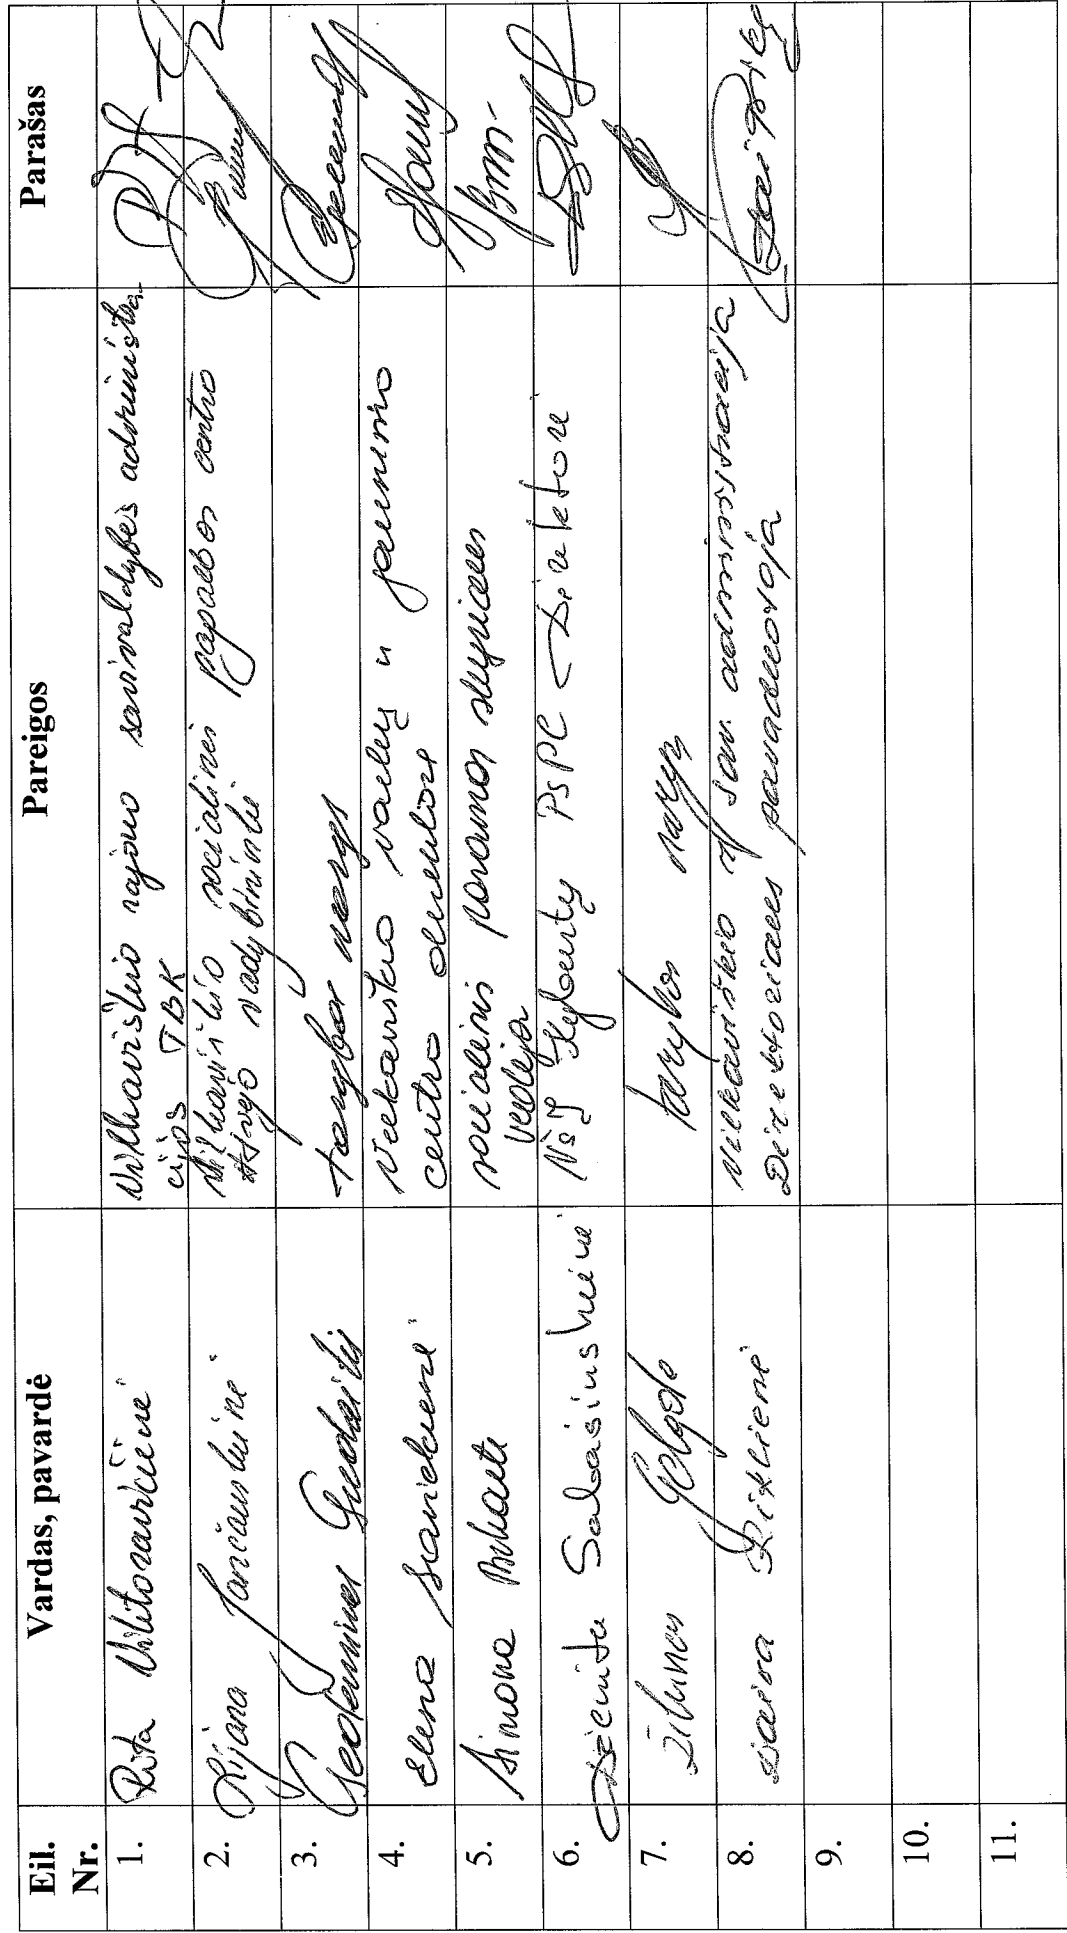 Eil. Nr. Vardas, pavardė Pareigos Parašas
1. Rita Vilitoravičienė Vilkaviškio rajono savivaldybės administra
cijos TBK
2. Rijana Jančiauskienė Vilkaviškio socialinės pagalbos centro
vadybininkė
3. Gediminas Gudaitis tarybos narys
4. Elena Savickienė Vilkaviškio vaikų ir jaunimo
centro direktorė
5. Simona socialinės paramos skyriaus
vedėja
6. Salasiuskienė VšĮ Kybartų PSPC Direktorė
7. Žilvinas Gelgota tarybos narys
8. Daiva Riklienė Vilkaviškio r. sav. administracija
Direktoriaus pavaduotoja
9.
10.
11.